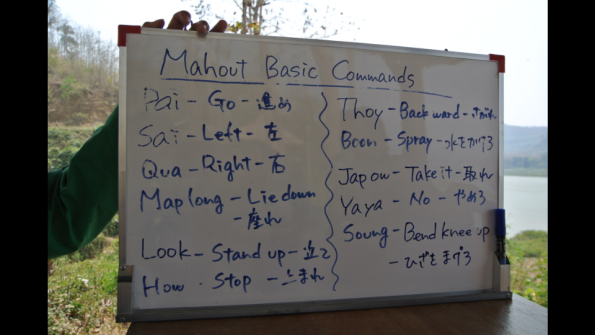 Mahout Basic Commands
Pai - Go - 進め
Sai - Left - 左
Qua - Right - 右
Maplong - Lie down
- 座れ
Look - Stand up - 立て
How - Stop - 止まれ
Thoy - Back ward - さがれ
Boon - Spray - 水をかけろ
Japow - Take it - 取れ
Yaya - No - やめろ
Soung - Bend knee up
- ひざをまげろ